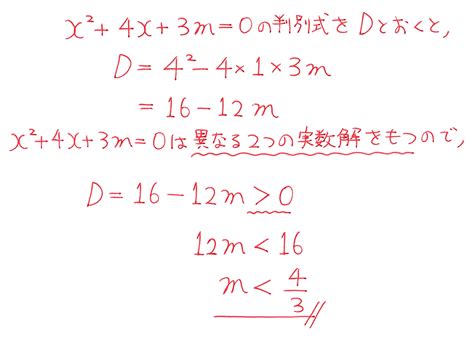 x²+4x+3m=0の判別式をDとおくと,
D=4²-4×1×3m
=16-12m
x²+4x+3m=0は異なる2つの実数解をもつので,
D=16-12m>0
12m<16
m<4/3